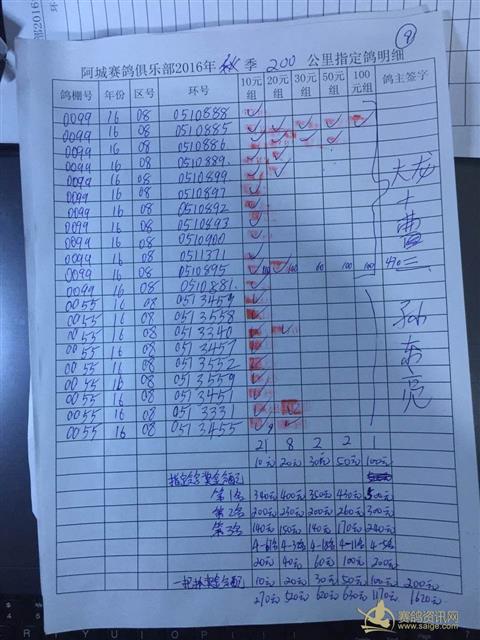 9
阿城赛鸽俱乐部2016年 秋 季 200 公里指定鸽明细
鸽棚号 年份 区号 环号 10元组 20元组 30元组 50元组 100元组 鸽主签字
0099 16 08 0510888 ✓
0099 16 08 0510885 ✓ ✓ ✓ ✓ ✓
0099 16 08 0510886 ✓ ✓ ✓ ✓
0099 16 08 0510889 ✓ ✓
0099 16 08 0510899 ✓ ✓
0099 16 08 0510897 ✓
0099 16 08 0510892 ✓
0099 16 08 0510893 ✓
0099 16 08 0510900 ✓
0099 16 08 0511371 ✓
0099 16 08 0510895 ✓ ✓ 60 100 100 490
0099 16 08 0510881 ✓
大龙十曹三
0055 16 08 0513459 ✓
0055 16 08 0513558 ✓
0055 16 08 0513340 ✓ ✓
0055 16 08 0513457 ✓
0055 16 08 0513552 ✓
0055 16 08 0513559 ✓
0055 16 08 0513451 ✓
0055 16 08 0513331 ✓
0055 16 08 0513455 ✓
孙东亮
21 8 2 2 1
10元 20元 30元 50元 100元
指定鸽奖金分配
第1名 340元 400元 350元 430元 500元
第2名 200元 230元 200元 260元 300元
第3名 140元 150元 140元 170元 240元
20元 40元 60元 100元 200元
10元 20元 30元 50元 100元 200元
270元 520元 620元 630元 1170元 1620元
赛鸽资讯网
www.saige.com